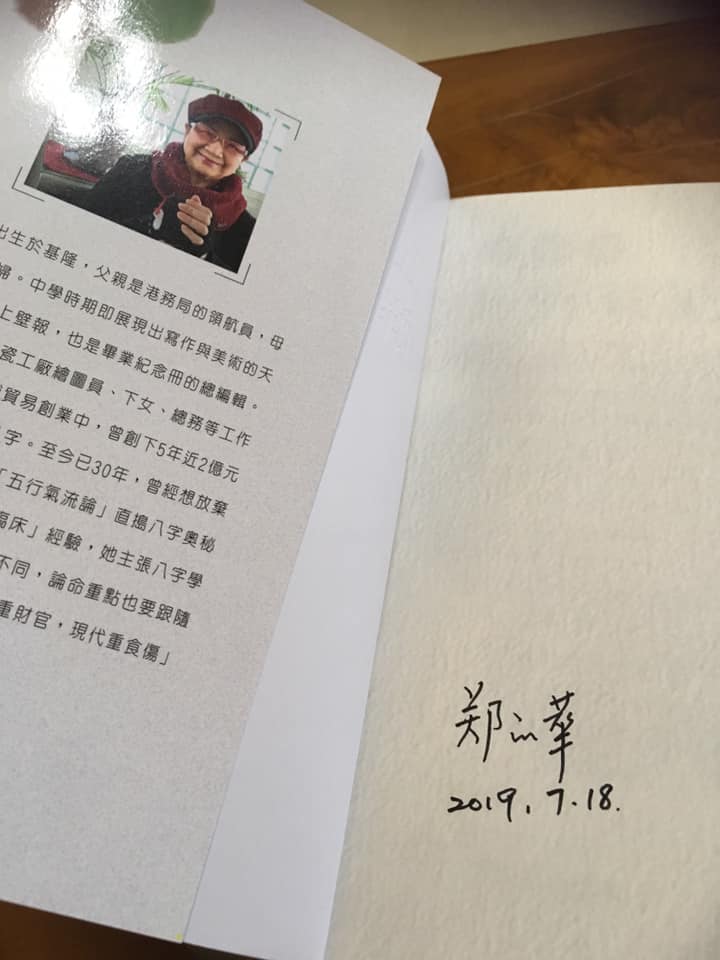 出生於基隆，父親是港務局的領航員，母
婦。中學時期即展現出寫作與美術的天
上壁報，也是畢業紀念冊的總編輯。
瓷工廠繪圖員、下女、總務等工作
貿易創業中，曾創下5年近2億元
字。至今已30年，曾經想放棄
「五行氣流論」直搗八字奧秘
臨床」經驗，她主張八字學
不同，論命重點也要跟隨
重財官，現代重食傷」
郑
2019.7.18.